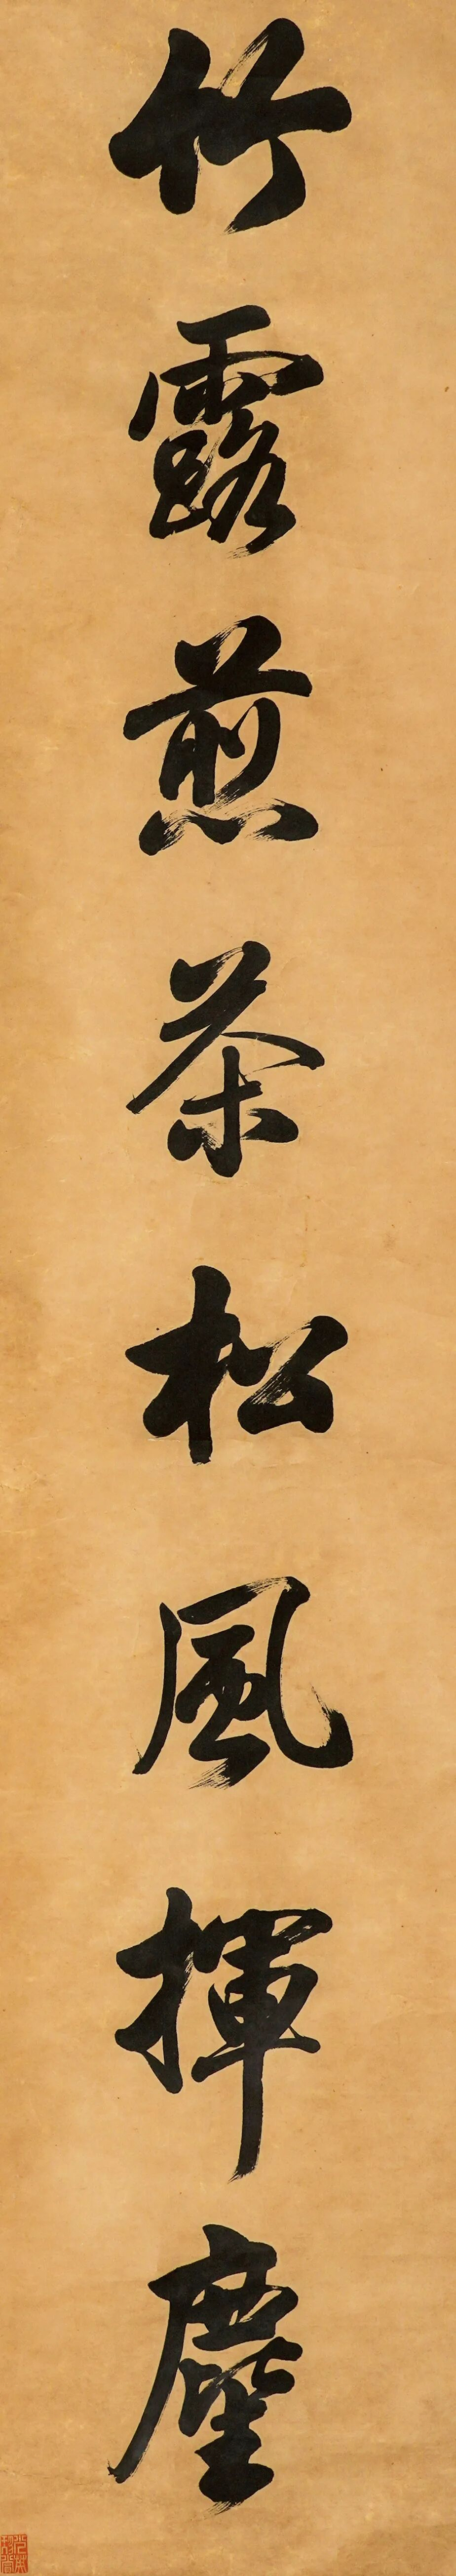 竹露煎茶松風揮麈